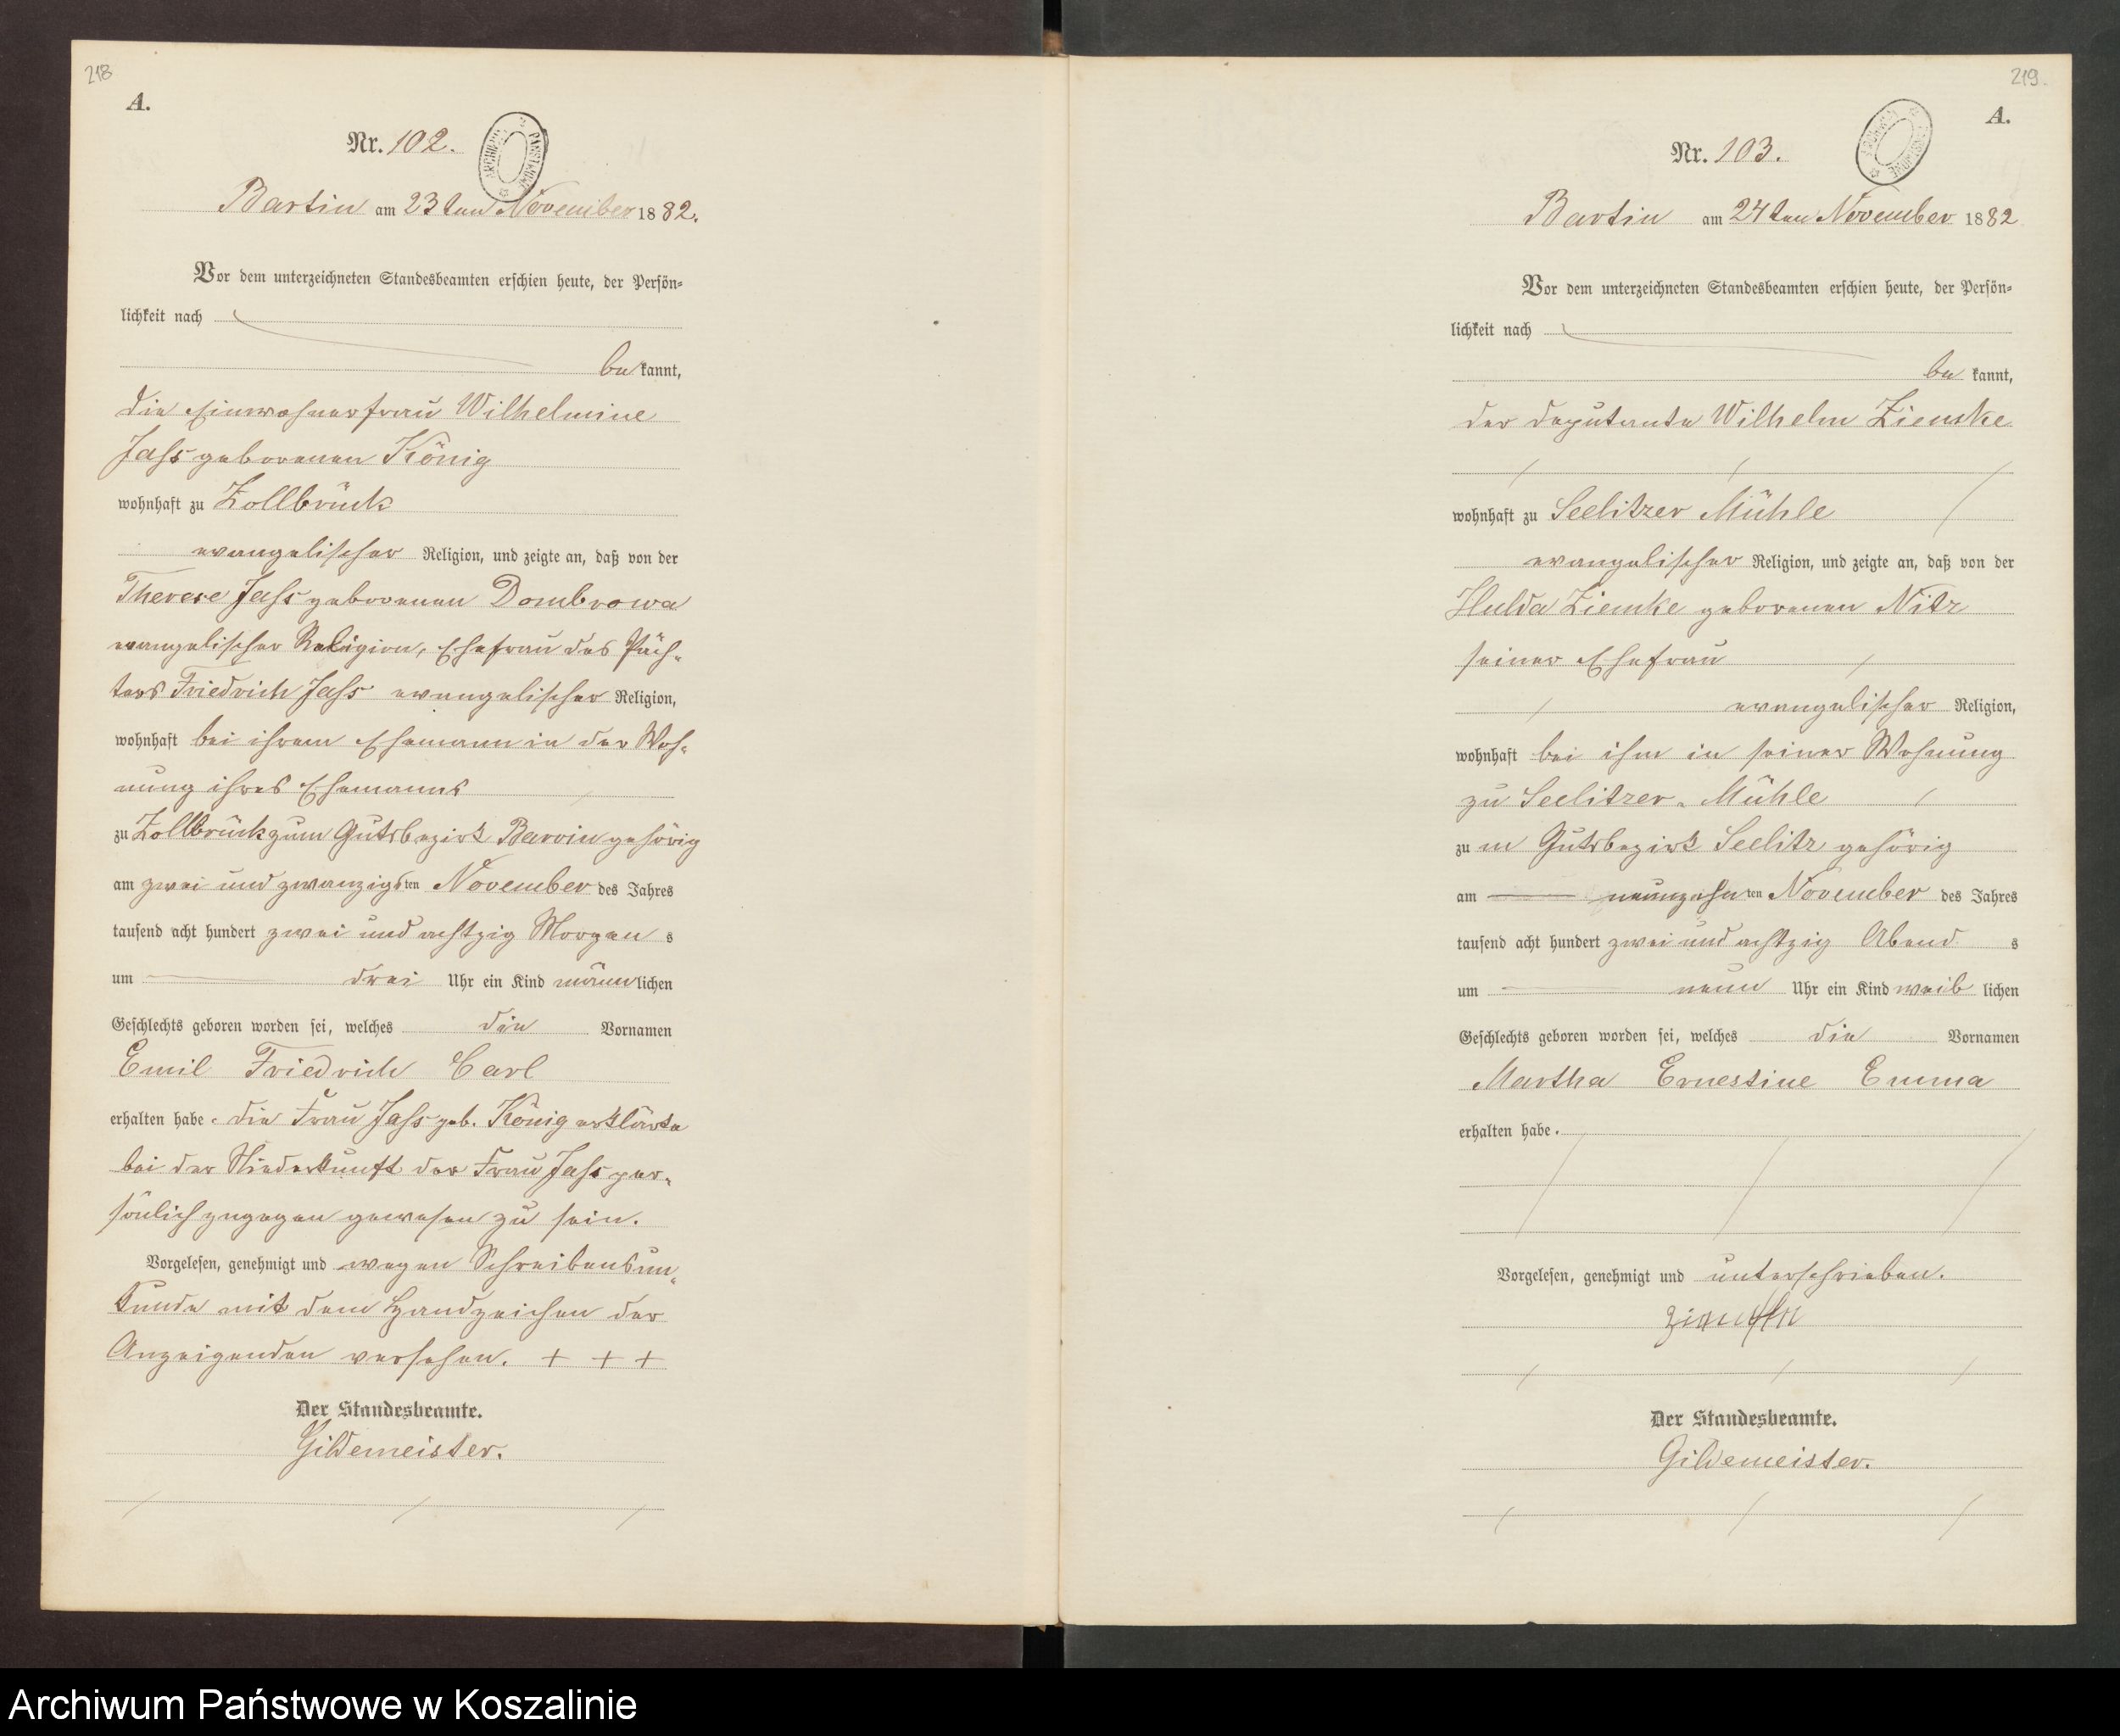 218
A.
Nr. 102.
ARCHIWUM PAŃSTWOWE
Bartin am 23ten November 1882.
Vor dem unterzeichneten Standesbeamten erschien heute, der Persön-
lichkeit nach
be kannt,
die Einwohnerfrau Wilhelmine
Jahs geborenen König
wohnhaft zu Zollbrück
evangelischer Religion, und zeigte an, daß von der
Therese Jahs geborenen Dombrowa
evangelischer Religion, Ehefrau des Päch-
ters Friedrich Jahs evangelischer Religion,
wohnhaft bei ihrem Ehemann in der Woh-
nung ihres Ehemanns
zu Zollbrück zum Gutsbezirk Barvin gehörig
am zwei und zwanzigsten November des Jahres
tausend acht hundert zwei und achtzig Morgen s
um drei Uhr ein Kind männlichen
Geschlechts geboren worden sei, welches die Vornamen
Emil Friedrich Carl
erhalten habe. Die Frau Jahs geb. König erklärte
bei der Niederkunft der Frau Jahs per-
sönlich zugegen gewesen zu sein.
Vorgelesen, genehmigt und wegen Schreibensun-
kunde mit dem Handzeichen der
Anzeigenden versehen. + + +
Der Standesbeamte.
Gildemeister.
219.
A.
Nr. 103.
ARCHIWUM PAŃSTWOWE
Bartin am 24ten November 1882
Vor dem unterzeichneten Standesbeamten erschien heute, der Persön-
lichkeit nach
be kannt,
der Deputante Wilhelm Ziemke
wohnhaft zu Seelitzer Mühle
evangelischer Religion, und zeigte an, daß von der
Hulda Ziemke geborenen Nitz
seiner Ehefrau
evangelischer Religion,
wohnhaft bei ihm in seiner Wohnung
zu Seelitzer-Mühle
zu m Gutsbezirk Seelitz gehörig
am neunzehnten November des Jahres
tausend acht hundert zwei und achtzig Abend s
um neun Uhr ein Kind weib lichen
Geschlechts geboren worden sei, welches die Vornamen
Martha Ernestine Emma
erhalten habe.
Vorgelesen, genehmigt und unterschrieben.
Ziemke
Der Standesbeamte.
Gildemeister.
Archiwum Państwowe w Koszalinie